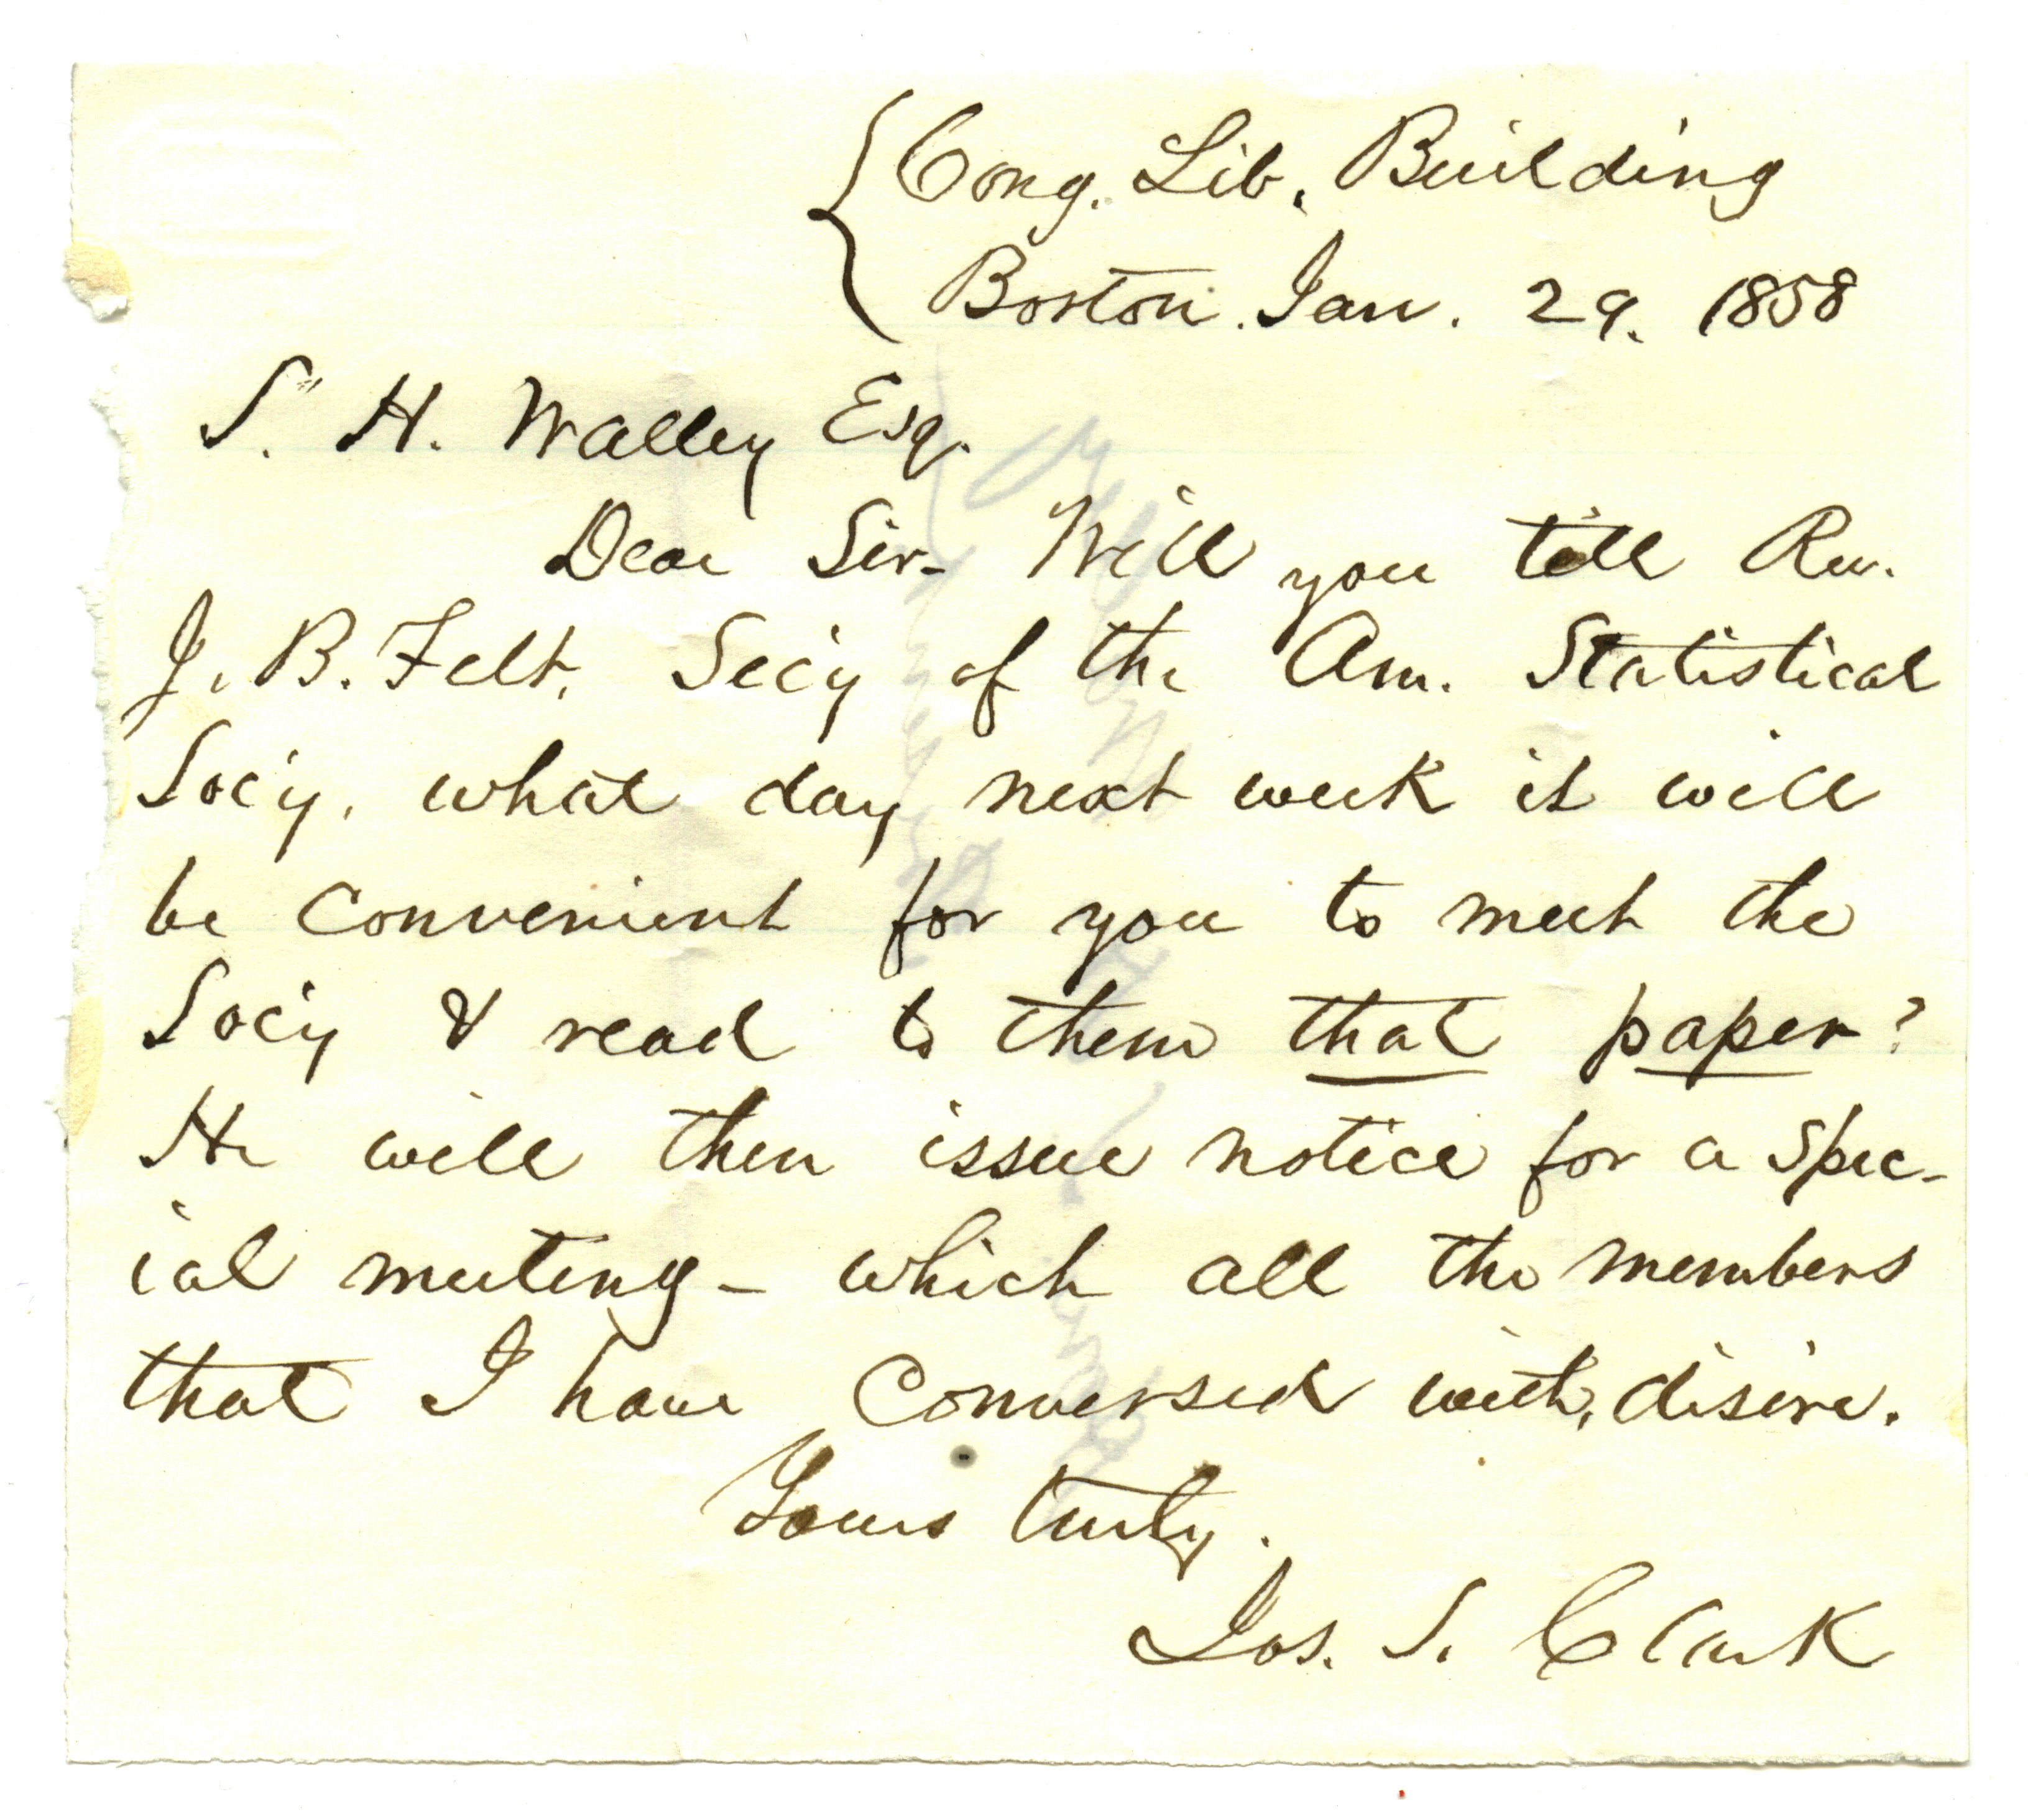 Cong. Lib. Building
Boston. Jan. 29. 1858
S. H. Walley Esq.
Dear Sir - Will you tell Rev.
J. B. Felt, Sec'y of the Am. Statistical
Soc'y, what day next week it will
be convenient for you to meet the
Soc'y & read to them that paper?
He will then issue notice for a spec-
ial meeting - which all the members
that I have conversed with, desire.
Yours truly.
Jos. S. Clark